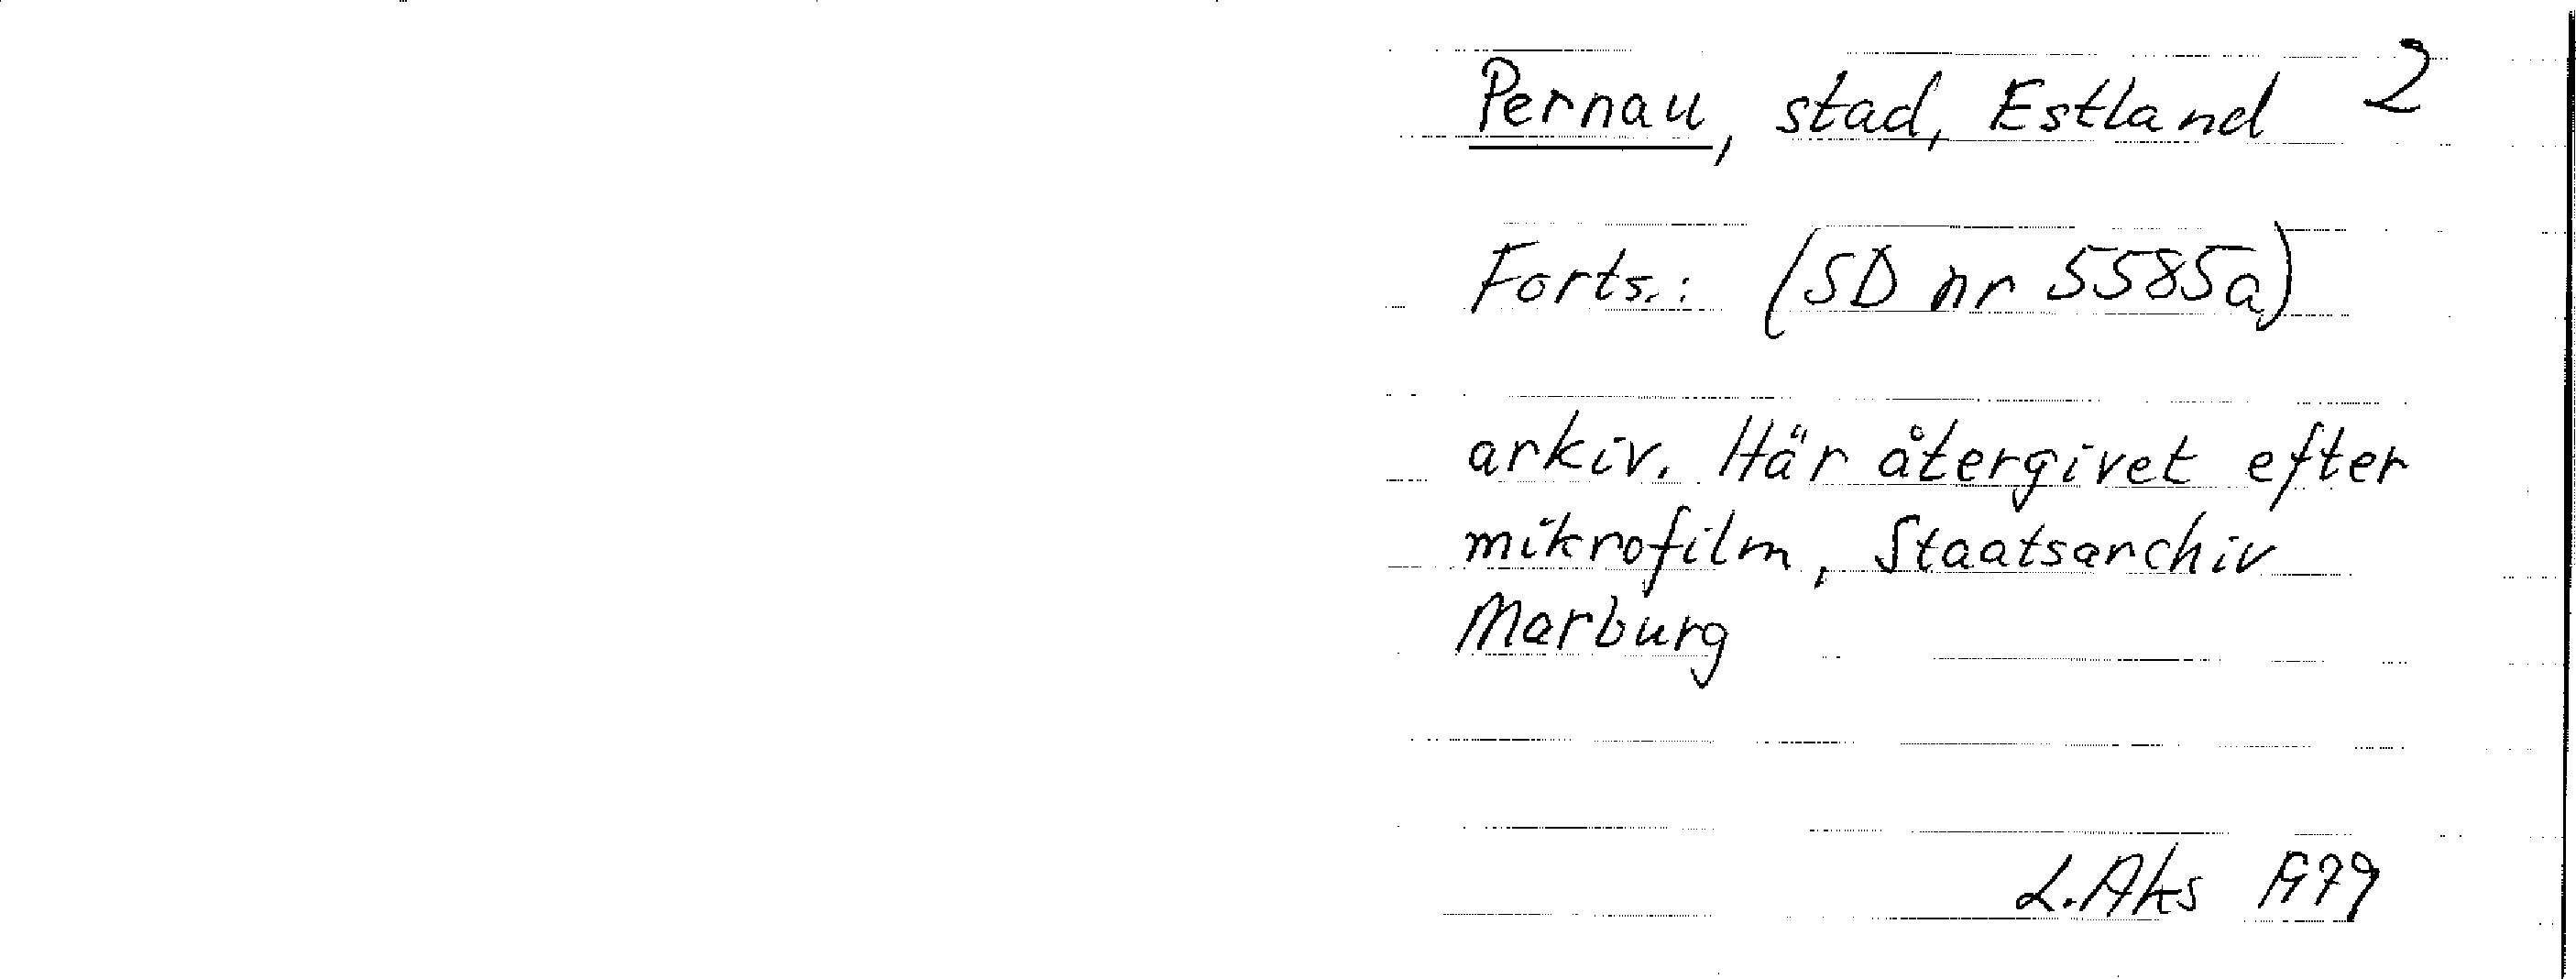 Pernau, stad, Estland 2
Forts.: (SD nr 5585a)
arkiv. Här återgivet efter
mikrofilm, Staatsarchiv
Marburg
L.Aks 1979